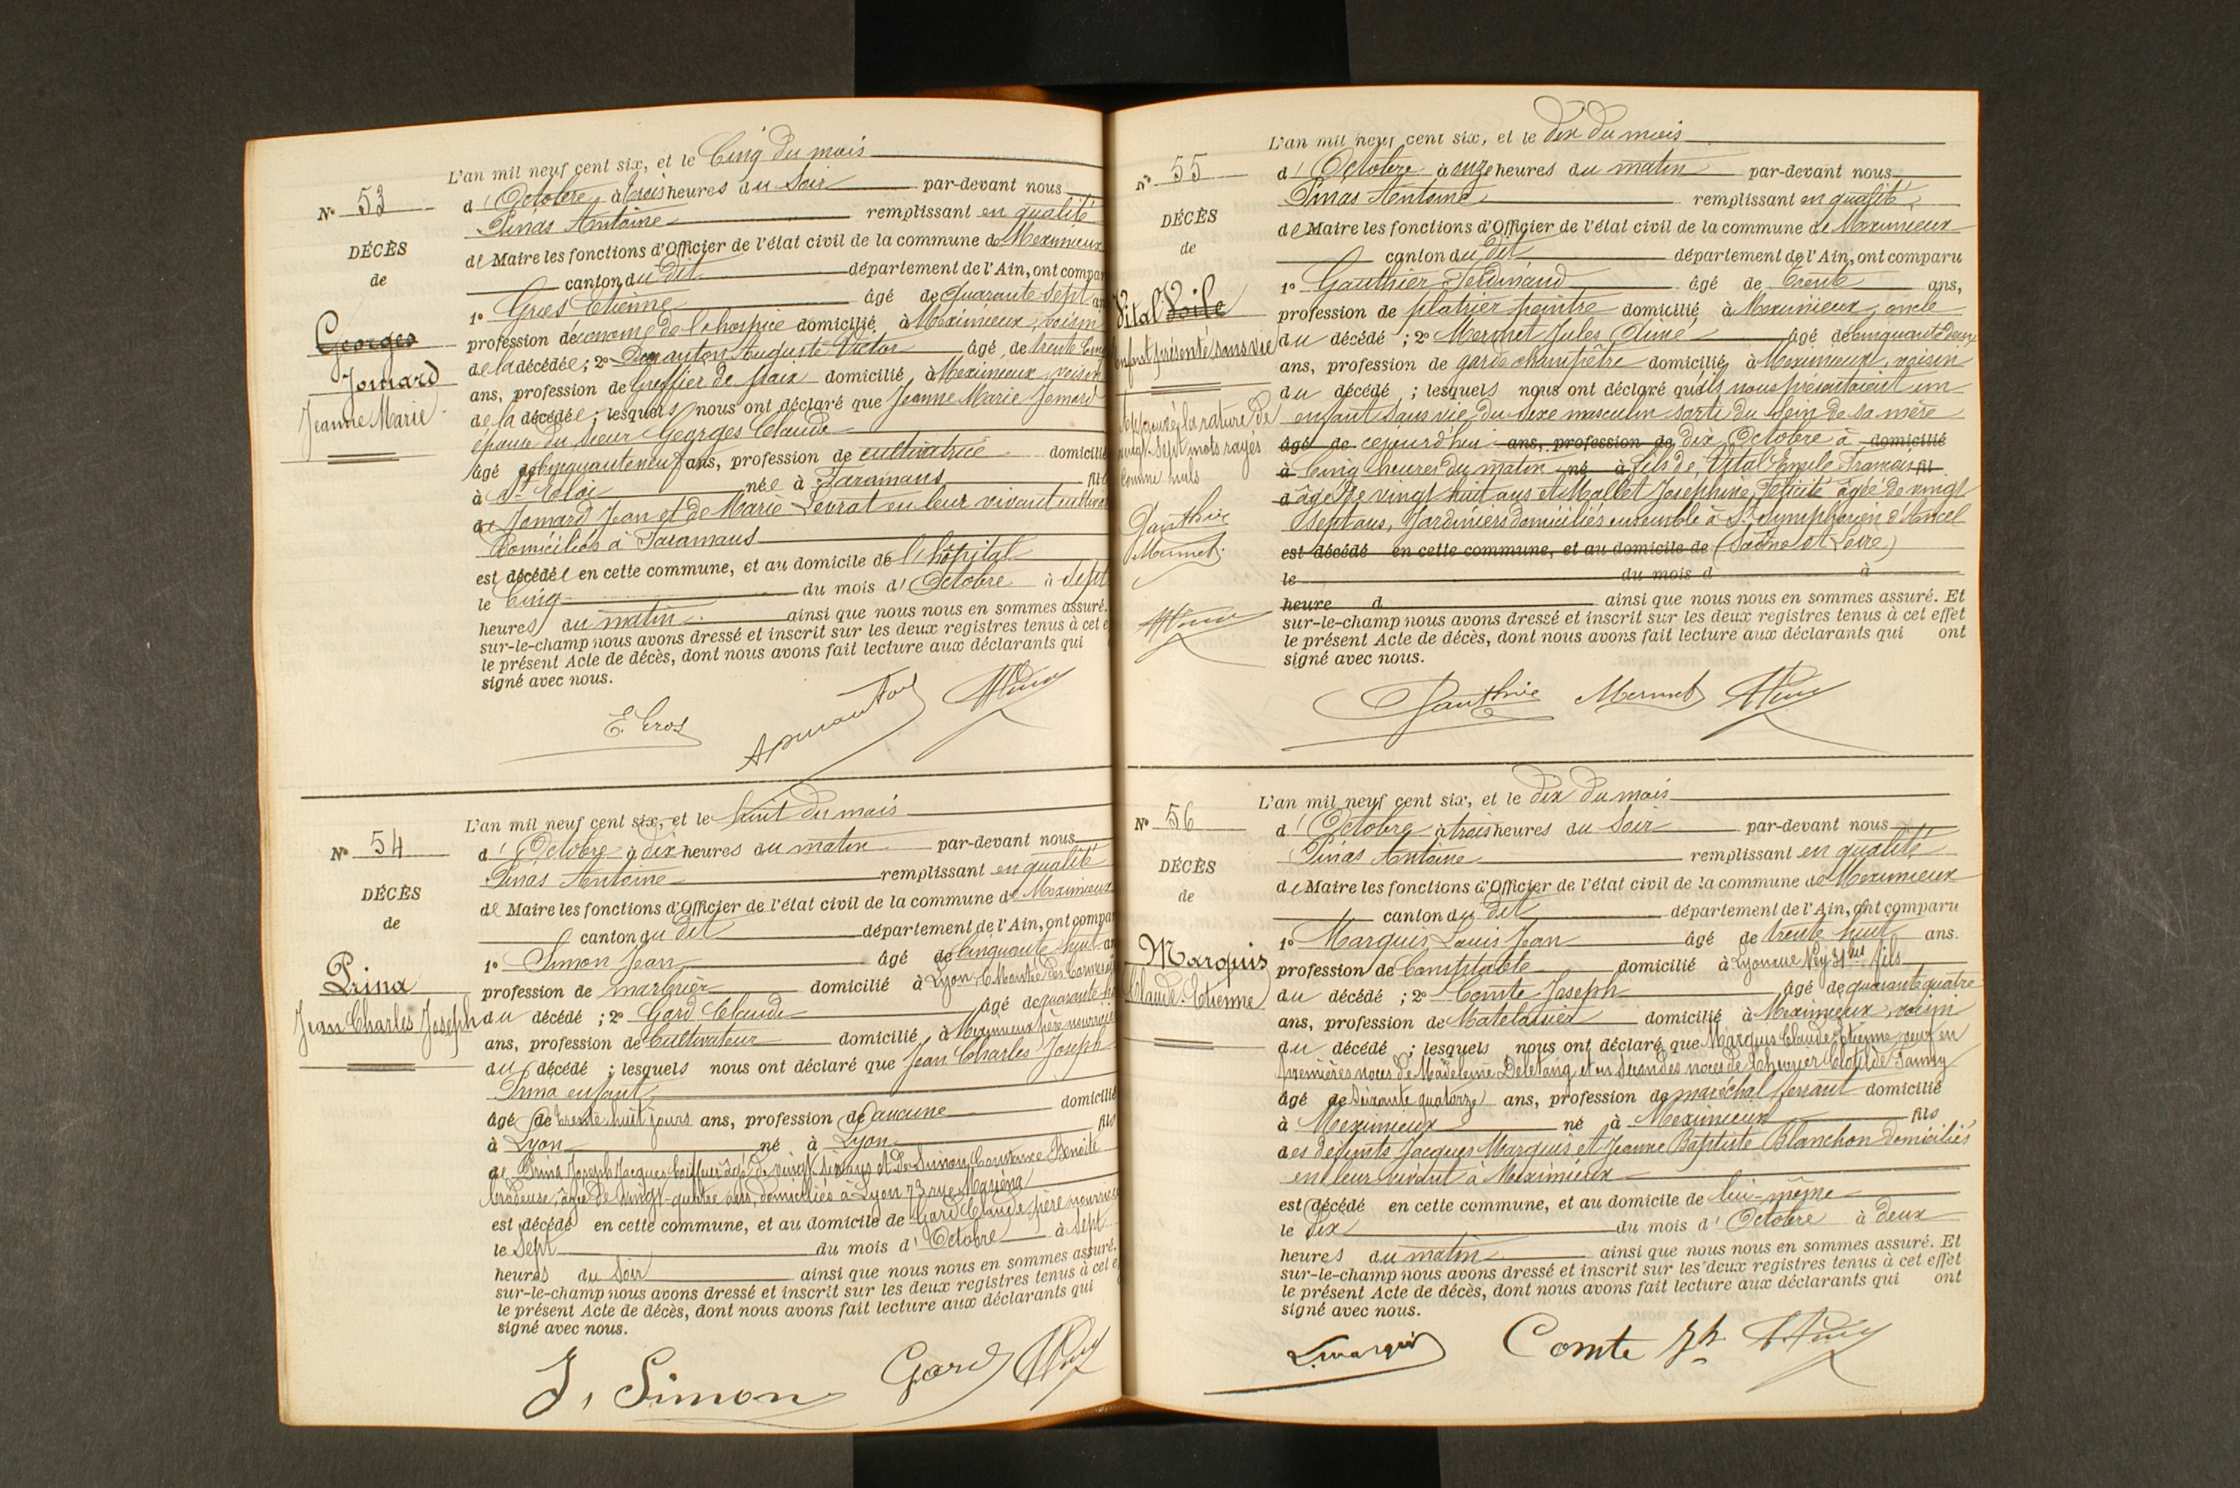 N° 53
DÉCÈS
de
Georges
Jomard
Jeanne Marie
L'an mil neuf cent six, et le Cinq du mois
d'Octobre à trois heures du Soir par-devant nous
Pinas Antoine remplissant en qualité
de Maire les fonctions d'Officier de l'état civil de la commune de Meximieux
canton du dit département de l'Ain, ont compar
1° Gros Etienne âgé de quarante sept an
profession d'économe de l'hospice domicilié à Meximieux, voisin
de la décédée; 2° Auguste Victor âgé de trente Cinq
ans, profession de Greffier de paix domicilié à Meximieux, voisin
de la décédée; lesquels nous ont déclaré que Jeanne Marie Jomard
épouse du sieur Georges Claude
âgé de Cinquante neuf ans, profession de cultivatrice domicilié
à St Eloi née à Faramans fille
de Jomard Jean et de Marie Levrat en leur vivant cultivat
Domiciliés à Faramans
est décédée en cette commune, et au domicile de l'hôpital
le Cinq du mois d'Octobre à sept
heures du matin ainsi que nous nous en sommes assuré.
sur-le-champ nous avons dressé et inscrit sur les deux registres tenus à cet e
le présent Acte de décès, dont nous avons fait lecture aux déclarants qui
signé avec nous.
E. Gros
N° 54
DÉCÈS
de
Prina
Jean Charles Joseph
L'an mil neuf cent six, et le huit du mois
d'Octobre à dix heures du matin par-devant nous
Pinas Antoine remplissant en qualité
de Maire les fonctions d'Officier de l'état civil de la commune de Meximieux
canton du dit département de l'Ain, ont compar
1° Simon Jean âgé de Cinquante huit an
profession de marbrier domicilié à Lyon
du décédé; 2° Gard Claude âgé de quarante
ans, profession de Cultivateur domicilié à Meximieux père nourricier
du décédé; lesquels nous ont déclaré que Jean Charles Joseph
Prina enfant
âgé de trente huit jours ans, profession de aucune domicilié
à Lyon né à Lyon fils
de Prina Joseph Jacques coiffeur âgé de vingt six ans et de Simon Constance Benoite
brodeuse, âgée de vingt-quatre ans, domiciliés à Lyon 73 rue Masséna
est décédé en cette commune, et au domicile de Gard Claude père nourricier
le Sept du mois d'Octobre à sept
heures du Soir ainsi que nous nous en sommes assuré.
sur-le-champ nous avons dressé et inscrit sur les deux registres tenus à cet e
le présent Acte de décès, dont nous avons fait lecture aux déclarants qui
signé avec nous.
J. Simon Gard
N° 55
DÉCÈS
de
Vital Voile
Enfant présenté sans vie
Approuvé la rature de
vingt-sept mots rayés
comme nuls
Gauthier
Mermet
L'an mil neuf cent six, et le dix du mois
d'Octobre à onze heures du matin par-devant nous
Pinas Antoine remplissant en qualité
de Maire les fonctions d'Officier de l'état civil de la commune de Meximieux
canton du dit département de l'Ain, ont comparu
1° Gauthier Ferdinand âgé de trente ans,
profession de plâtrier peintre domicilié à Meximieux, oncle
du décédé; 2° Mermet Jules Aimé âgé de cinquante deux
ans, profession de garde champêtre domicilié à Meximieux, voisin
du décédé; lesquels nous ont déclaré qu'ils nous présentaient un
enfant sans vie, du sexe masculin sorti du sein de sa mère
âgé de cejourd'hui ans, profession de dix Octobre à domicilié
à Cinq heures du matin né à fils de Vital Emile François fil
d'âgé de vingt huit ans et Mallet Josephine Félicité âgée de vingt
sept ans, Jardiniers domiciliés ensemble à St Symphorien d'Ancel
est décédé en cette commune, et au domicile de (Saône et Loire)
le du mois d à
heure d ainsi que nous nous en sommes assuré. Et
sur-le-champ nous avons dressé et inscrit sur les deux registres tenus à cet effet
le présent Acte de décès, dont nous avons fait lecture aux déclarants qui ont
signé avec nous.
Gauthier Mermet
N° 56
DÉCÈS
de
Marquis
Claude-Etienne
L'an mil neuf cent six, et le dix du mois
d'Octobre à trois heures du Soir par-devant nous
Pinas Antoine remplissant en qualité
de Maire les fonctions d'Officier de l'état civil de la commune de Meximieux
canton du dit département de l'Ain, ont comparu
1° Marquis Louis Jean âgé de trente huit ans.
profession de Comptable domicilié à Lyon rue Ney 31 fils
du décédé; 2° Comte Joseph âgé de quarante quatre
ans, profession de Matelassier domicilié à Meximieux, voisin
du décédé; lesquels nous ont déclaré que Marquis Claude-Etienne veuf en
premières noces de Madeleine Deletang et en secondes noces de Clotilde Fanny
âgé de Soixante quatorze ans, profession de maréchal ferrant domicilié
à Meximieux né à Meximieux fils
des défunts Jacques Marquis et Jeanne Baptiste Blanchon domiciliés
en leur vivant à Meximieux
est décédé en cette commune, et au domicile de lui-même
le dix du mois d'Octobre à deux
heures du matin ainsi que nous nous en sommes assuré. Et
sur-le-champ nous avons dressé et inscrit sur les deux registres tenus à cet effet
le présent Acte de décès, dont nous avons fait lecture aux déclarants qui ont
signé avec nous.
L. marquis Comte Jh